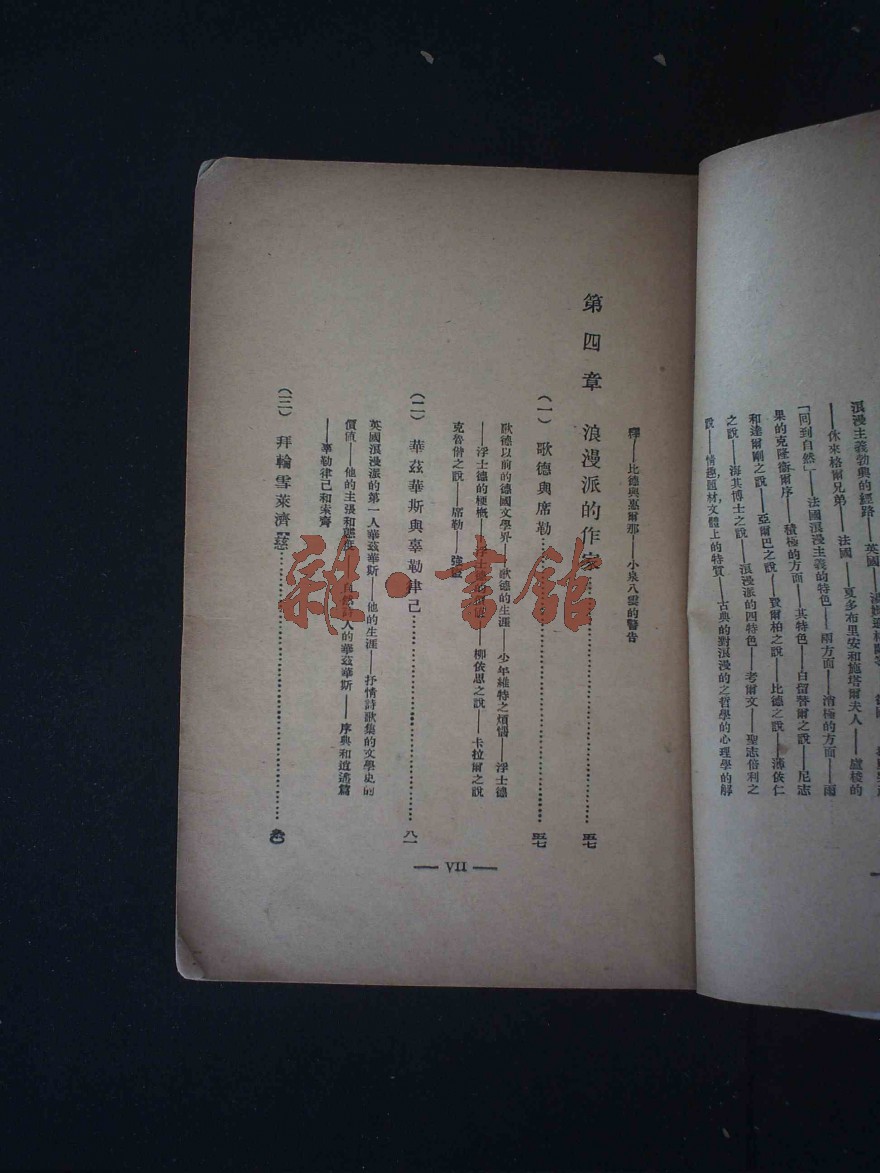 浪漫主義勃興的經路
——休來格爾兄弟——法國——夏多布里安和施塔爾夫人——盧梭的
「回到自然」——法國浪漫主義的特色——兩方面——消極的方面——雨
果的克隆衞爾序——積極的方面——其特色——白留發爾之說——尼志
和達爾剛之說——亞爾巴之說——費爾柏之說——比德之說——薄依仁
之說——海其博士之說——浪漫派的四特色——考爾文——聖志倍利之
說——情趣,題材,文體上的特質——古典的對浪漫的之哲學的心理學的解
釋——比德與惠爾那——小泉八雲的警告
第四章 浪漫派的作家 五七
(一) 歌德與席勒 五七
歌德以前的德國文學界——歌德的生涯——少年維特之煩惱——浮士德
——浮士德的梗概——浮士德的——柳依思之說——卡拉爾之說
克魯僧之說——席勒——強盜
(二) 華茲華斯與辜勒律己 八一
英國浪漫派的第一人華茲華斯——他的生涯——抒情詩歌集的文學史的
價值——他的主張和態度——自然詩人的華茲華斯——序典和逍遙篇
——辜勒律己和索齊
(三) 拜輪雪萊濟慈
— VII —
雜·書館